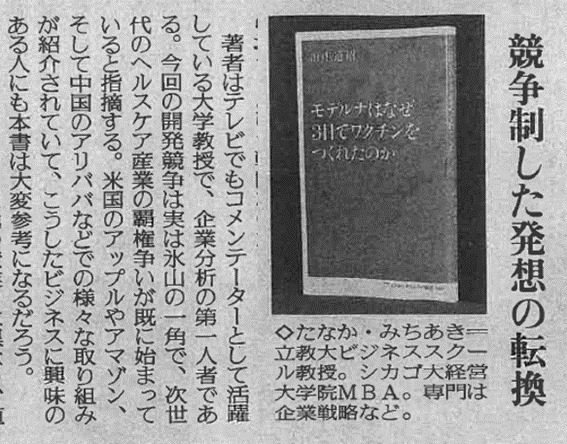 競争制した発想の転換
田中道昭
モデルナはなぜ
3日でワクチンを
つくれたのか
◇たなか・みちあき＝
立教大ビジネススクー
ル教授。シカゴ大経営
大学院ＭＢＡ。専門は
企業戦略など。
著者はテレビでもコメンテーターとして活躍
している大学教授で、企業分析の第一人者であ
る。今回の開発競争は実は氷山の一角で、次世
代のヘルスケア産業の覇権争いが既に始まって
いると指摘する。米国のアップルやアマゾン、
そして中国のアリババなどでの様々な取り組み
が紹介されていて、こうしたビジネスに興味の
ある人にも本書は大変参考になるだろう。